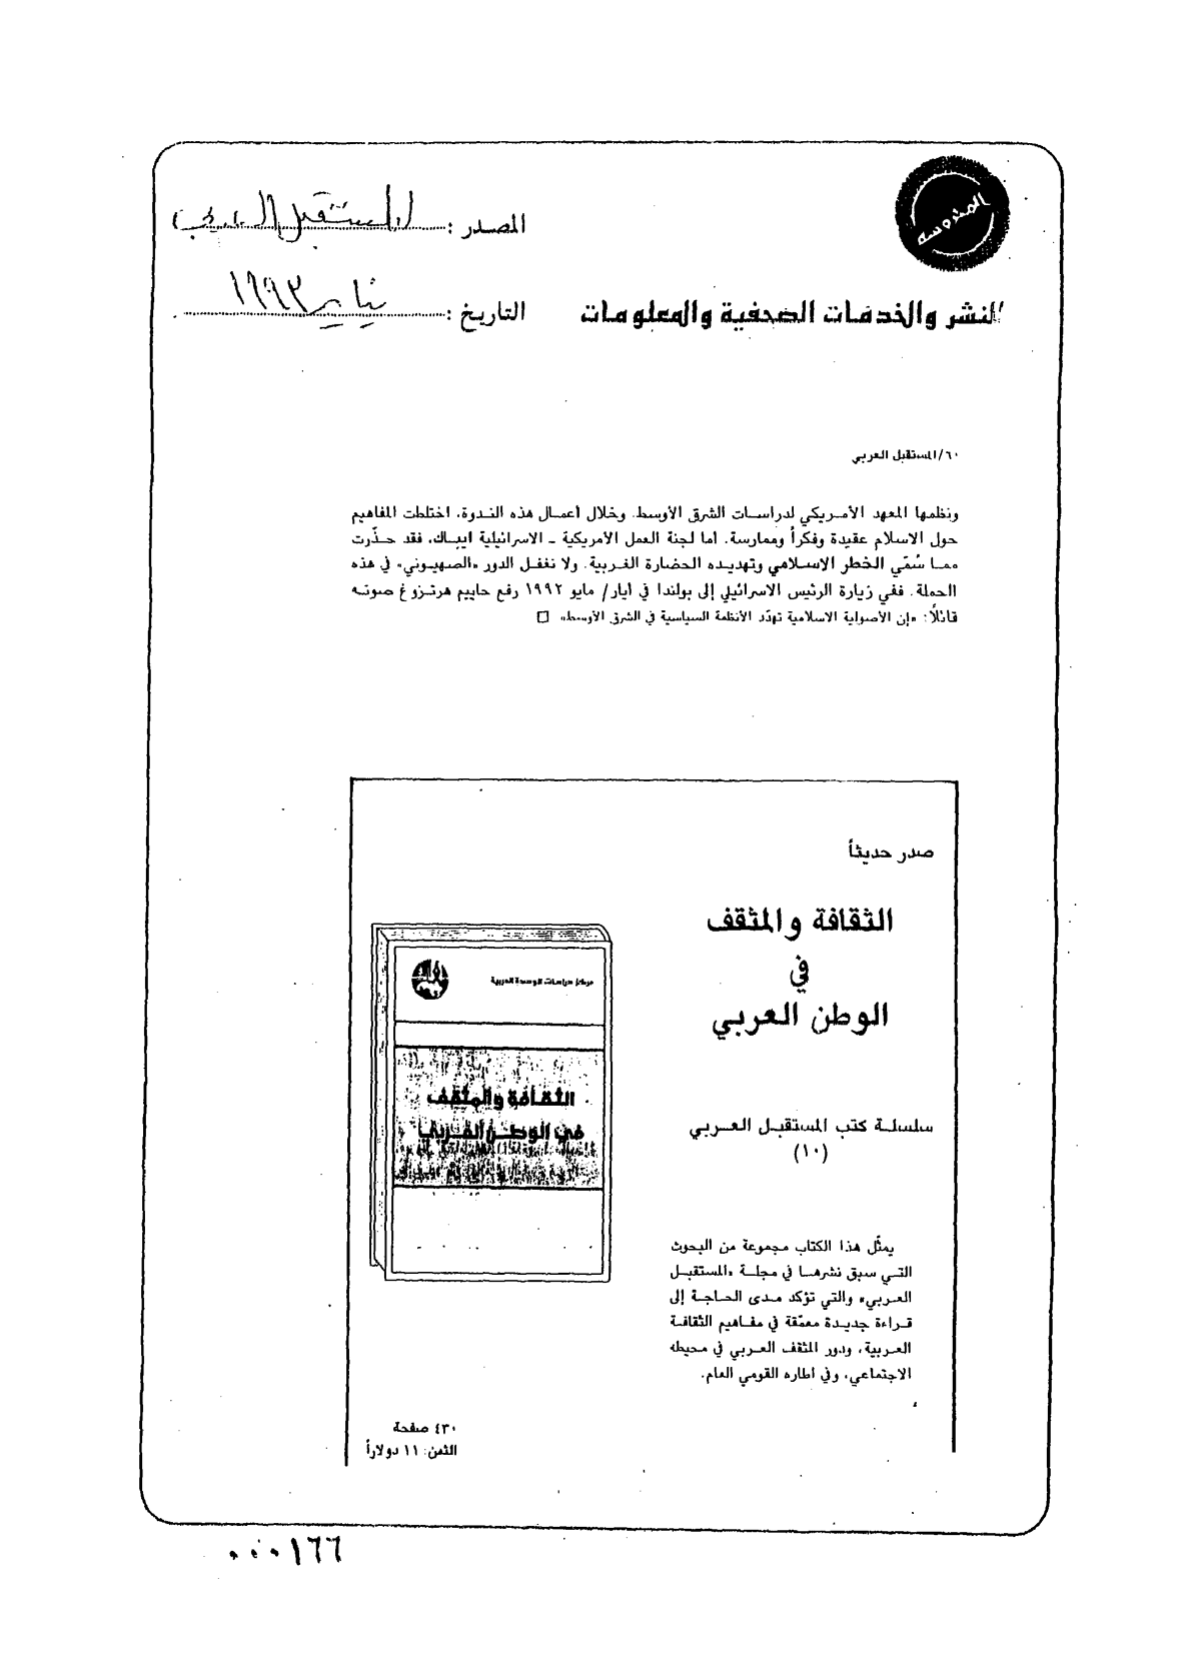 المحروسة
للنشر والخدمات الصحفية والمعلومات
المصدر : المستقبل العربي
التاريخ : يناير ١٩٩٣
٦٠/المستقبل العربي
ونظمها المعهد الأمريكي لدراسات الشرق الأوسط. وخلال أعمال هذه الندوة، اختلطت المفاهيم
حول الاسلام عقيدة وفكراً وممارسة. أما لجنة العمل الأمريكية ـ الاسرائيلية ايباك، فقد حذّرت
مما سُمّي الخطر الاسلامي وتهديده الحضارة الغربية. ولا نغفل الدور «الصهيوني» في هذه
الحملة. ففي زيارة الرئيس الاسرائيلي إلى بولندا في أيار/ مايو ١٩٩٢ رفع حاييم هرتزوغ صوته
قائلاً: «إن الأصولية الاسلامية تهدّد الأنظمة السياسية في الشرق الأوسط» □
صدر حديثاً
الثقافة والمثقف
في
الوطن العربي
سلسلة كتب المستقبل العربي
(١٠)
يمثّل هذا الكتاب مجموعة من البحوث
التي سبق نشرها في مجلة «المستقبل
العربي» والتي تؤكد مدى الحاجة إلى
قراءة جديدة معمّقة في مفاهيم الثقافة
العربية، ودور المثقف العربي في محيطه
الاجتماعي، وفي اطاره القومي العام.
مركز دراسات الوحدة العربية
الثقافة والمثقف
في الوطن العربي
٤٣٠ صفحة
الثمن: ١١ دولاراً
٠٠٠١٦٦